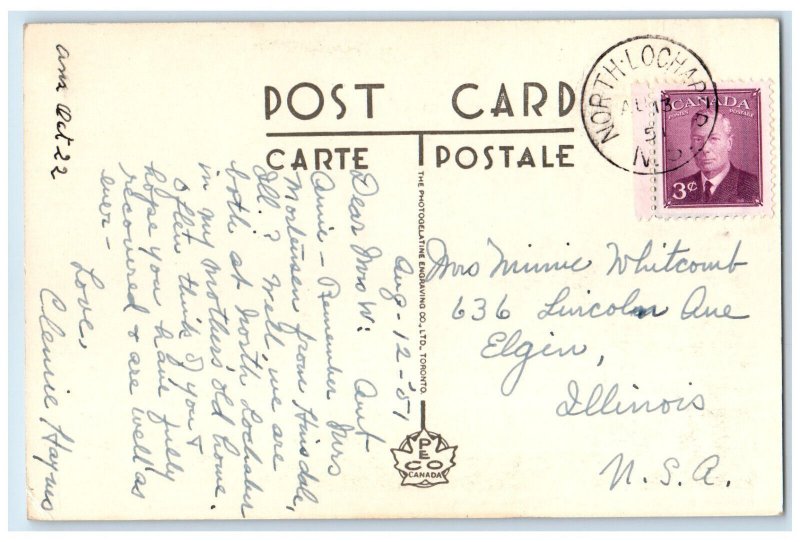 POST CARD
CARTE POSTALE
THE PHOTOGELATINE ENGRAVING CO., LTD., TORONTO
PECO
CANADA
NORTH LOCHABER
AU 13
51
N.S.
CANADA
POSTES POSTAGE
3¢
Mrs Minnie Whitcomb
636 Lincoln Ave
Elgin,
Illinois
U.S.A.
Aug-12-'51
Dear Mrs W: Aunt
Annie - Remember Mrs
Mortensen from Hinsdale,
Ill.? Well, we are
both at North Lochaber
in my Mother's old home.
Often think of you &
hope you have fully
recovered & are well as
ever-
Love,
Haynes
ans Oct 22